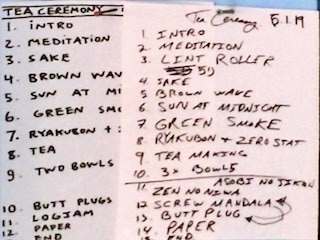 TEA CEREMONY
1. INTRO
2. MEDITATION
3. SAKE
4. BROWN WAV
5. SUN AT MI
6. GREEN SMO
7. RYAKUBON +
8. TEA
9. TWO BOWLS
10. BUTT PLUGS
11. LOGJAM
12. PAPER
END
Tea Ceremony 5.1.19
1. INTRO
2. MEDITATION
3. LINT ROLLER
4. SAKE
5 BROWN WAVE
6. SUN AT MIDNIGHT
7 GREEN SMOKE
8. RYAKUBON + ZERO STAT
9 TEA MAKING
10 3X BOWLS
11 ASOBI NO JIKAN
ZEN NO NIWA
12 SCREW MANDALA
13. BUTT PLUG
14. PAPER
END